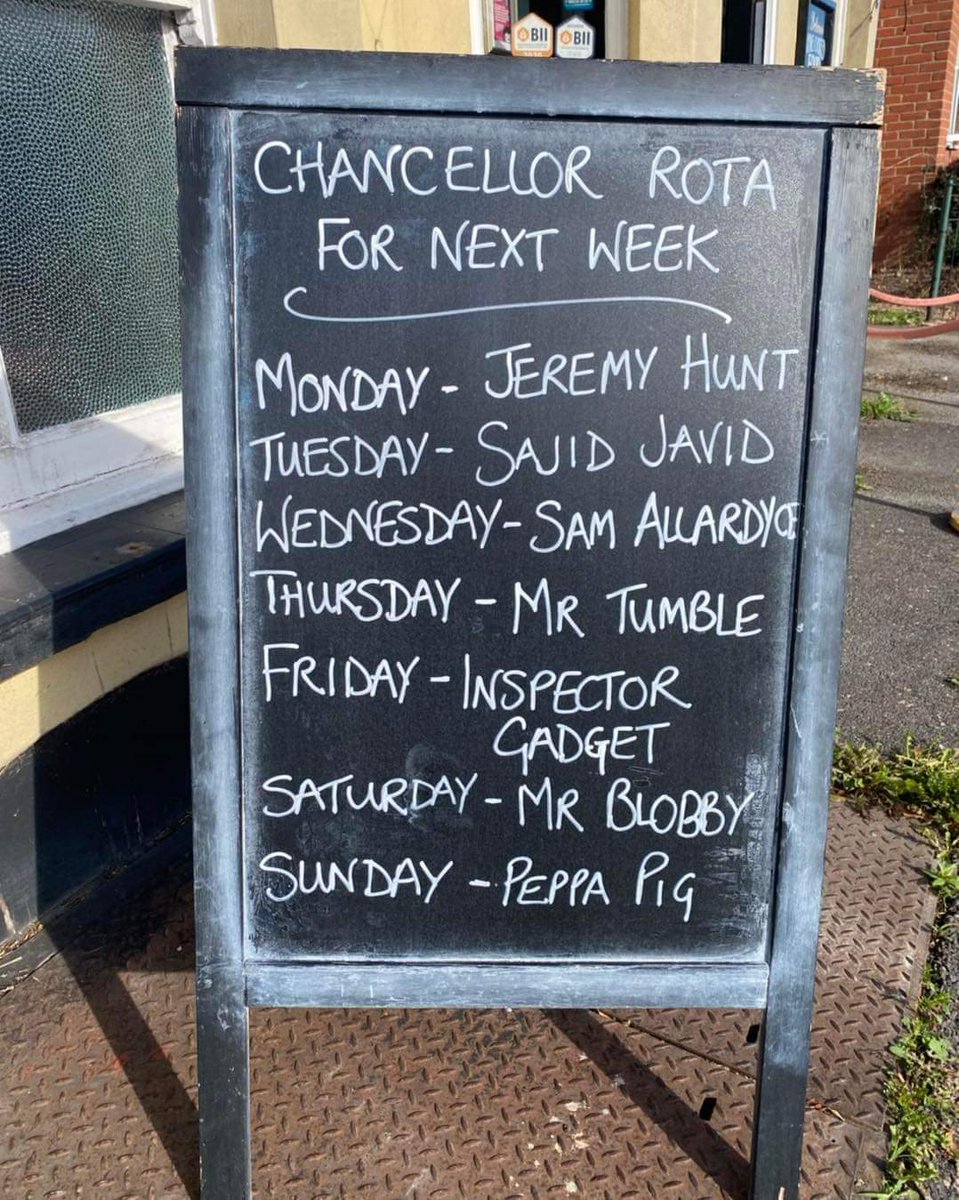 BII
BII
CHANCELLOR ROTA
FOR NEXT WEEK
MONDAY - JEREMY HUNT
TUESDAY - SAJID JAVID
WEDNESDAY - SAM ALLARDYCE
THURSDAY - MR TUMBLE
FRIDAY - INSPECTOR
GADGET
SATURDAY - MR BLOBBY
SUNDAY - PEPPA PIG